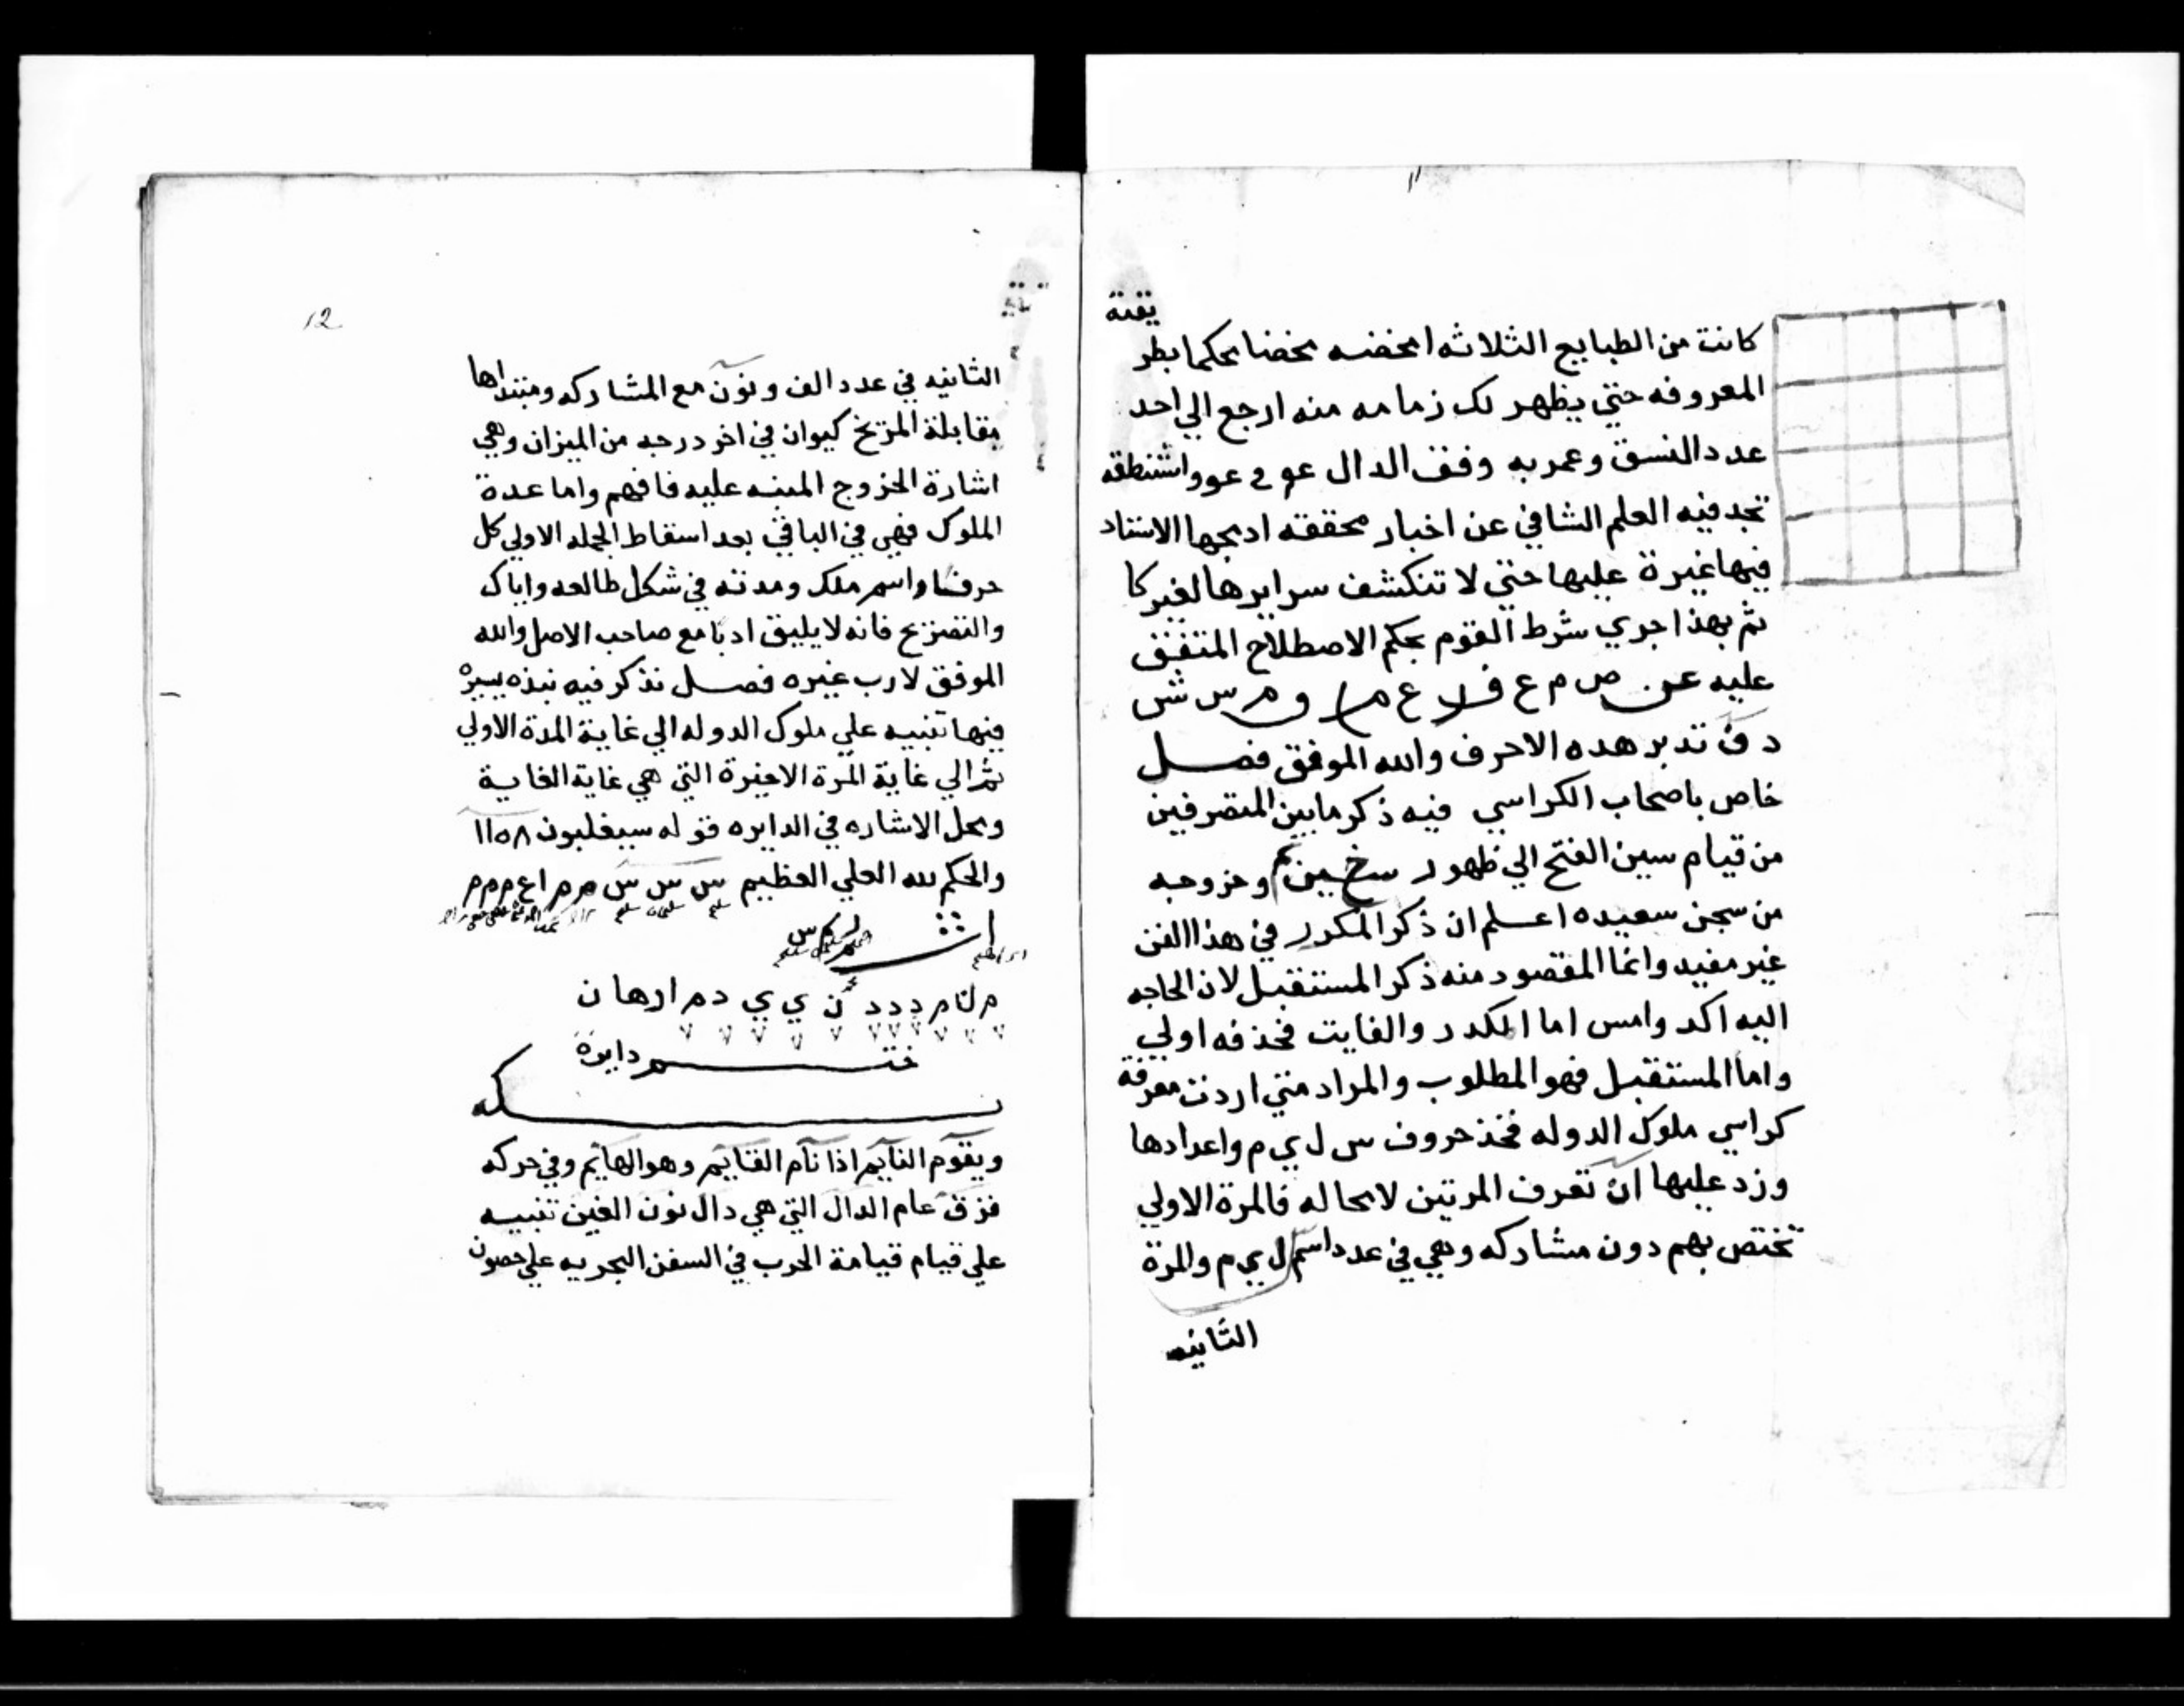 كانت من الطبايع الثلاثه امخضه مخضا محكما بطريقة
المعروفه حتي يظهر لك زمامه منه ارجع الي احد
عدد النسق وعمر به وفق الدال واستنطقه
تجد فيه العلم الشافي عن اخبار محققه ادمجها الاستاد
فيها غيرة عليها حتي لا تنكشف سرايرها لغير
ثم بهذا جري شرط القوم بحكم الاصطلاح المتفق
عليه عن ص م ع
تدبر هده الاحرف والله الموفق فصل
خاص باصحاب الكراسي فيه ذكر ما بين المتصرفين
من قيام سين الفتح الي ظهور وخروجه
من سجن سعيده اعلم ان ذكر المكرر في هذا الفن
غير مفيد وانما المقصود منه ذكر المستقبل لان الحاجه
اليه اكد وامس اما المكرر والفايت فحذفه اولي
واما المستقبل فهو المطلوب والمراد متي اردت معرفة
كراسي ملوك الدوله فخذ حروف س ل ي م واعدادها
وزد عليها ان تعرف المرتين لا محاله فالمرة الاولي
تختص بهم دون مشاركه وهي في عدد اسم ل ي م والمرة
الثانيه
12
الثانيه في عدد الف ونون مع المشاركه ومبتداها
مقابلة المريخ كيوان في اخر درجه من الميزان وهي
اشارة الخروج المنبه عليه فافهم واما عدة
الملوك فهي في الباقي بعد اسقاط الجمله الاولي كل
حرف واسم ملك ومدته في شكل طالعه واياك
والتصريح فانه لا يليق ادبا مع صاحب الاصل والله
الموفق لا رب غيره فصل نذكر فيه نبذه يسيرة
فيها تنبيه علي ملوك الدوله الي غاية المدة الاولي
ثم الي غاية المرة الاخيرة التي هي غاية الغاية
ومحل الاشاره في الدايره قوله سيغلبون ١١٥٨
والحكم لله العلي العظيم س س س م م ا ع م م م
د د د ن ي ي د م ا ر ه ا ن
ختم دايرة
ويقوم النايم اذا نام القايم وهو الهايم وفي حركه
عام الدال التي هي دال نون الغين تنبيه
علي قيام قيامة الحرب في السفن البحريه علي حصون